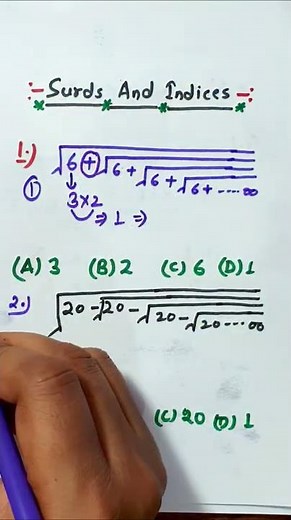 :- Surds And Indices -:
1.) √6 + √6 + √6 + √6 + ..... ∞
① 3×2
⇒ 1 ⇒
(A) 3 (B) 2 (C) 6 (D) 1
2.) √20 - √20 - √20 - √20 .... ∞
(C) 20 (D) 1